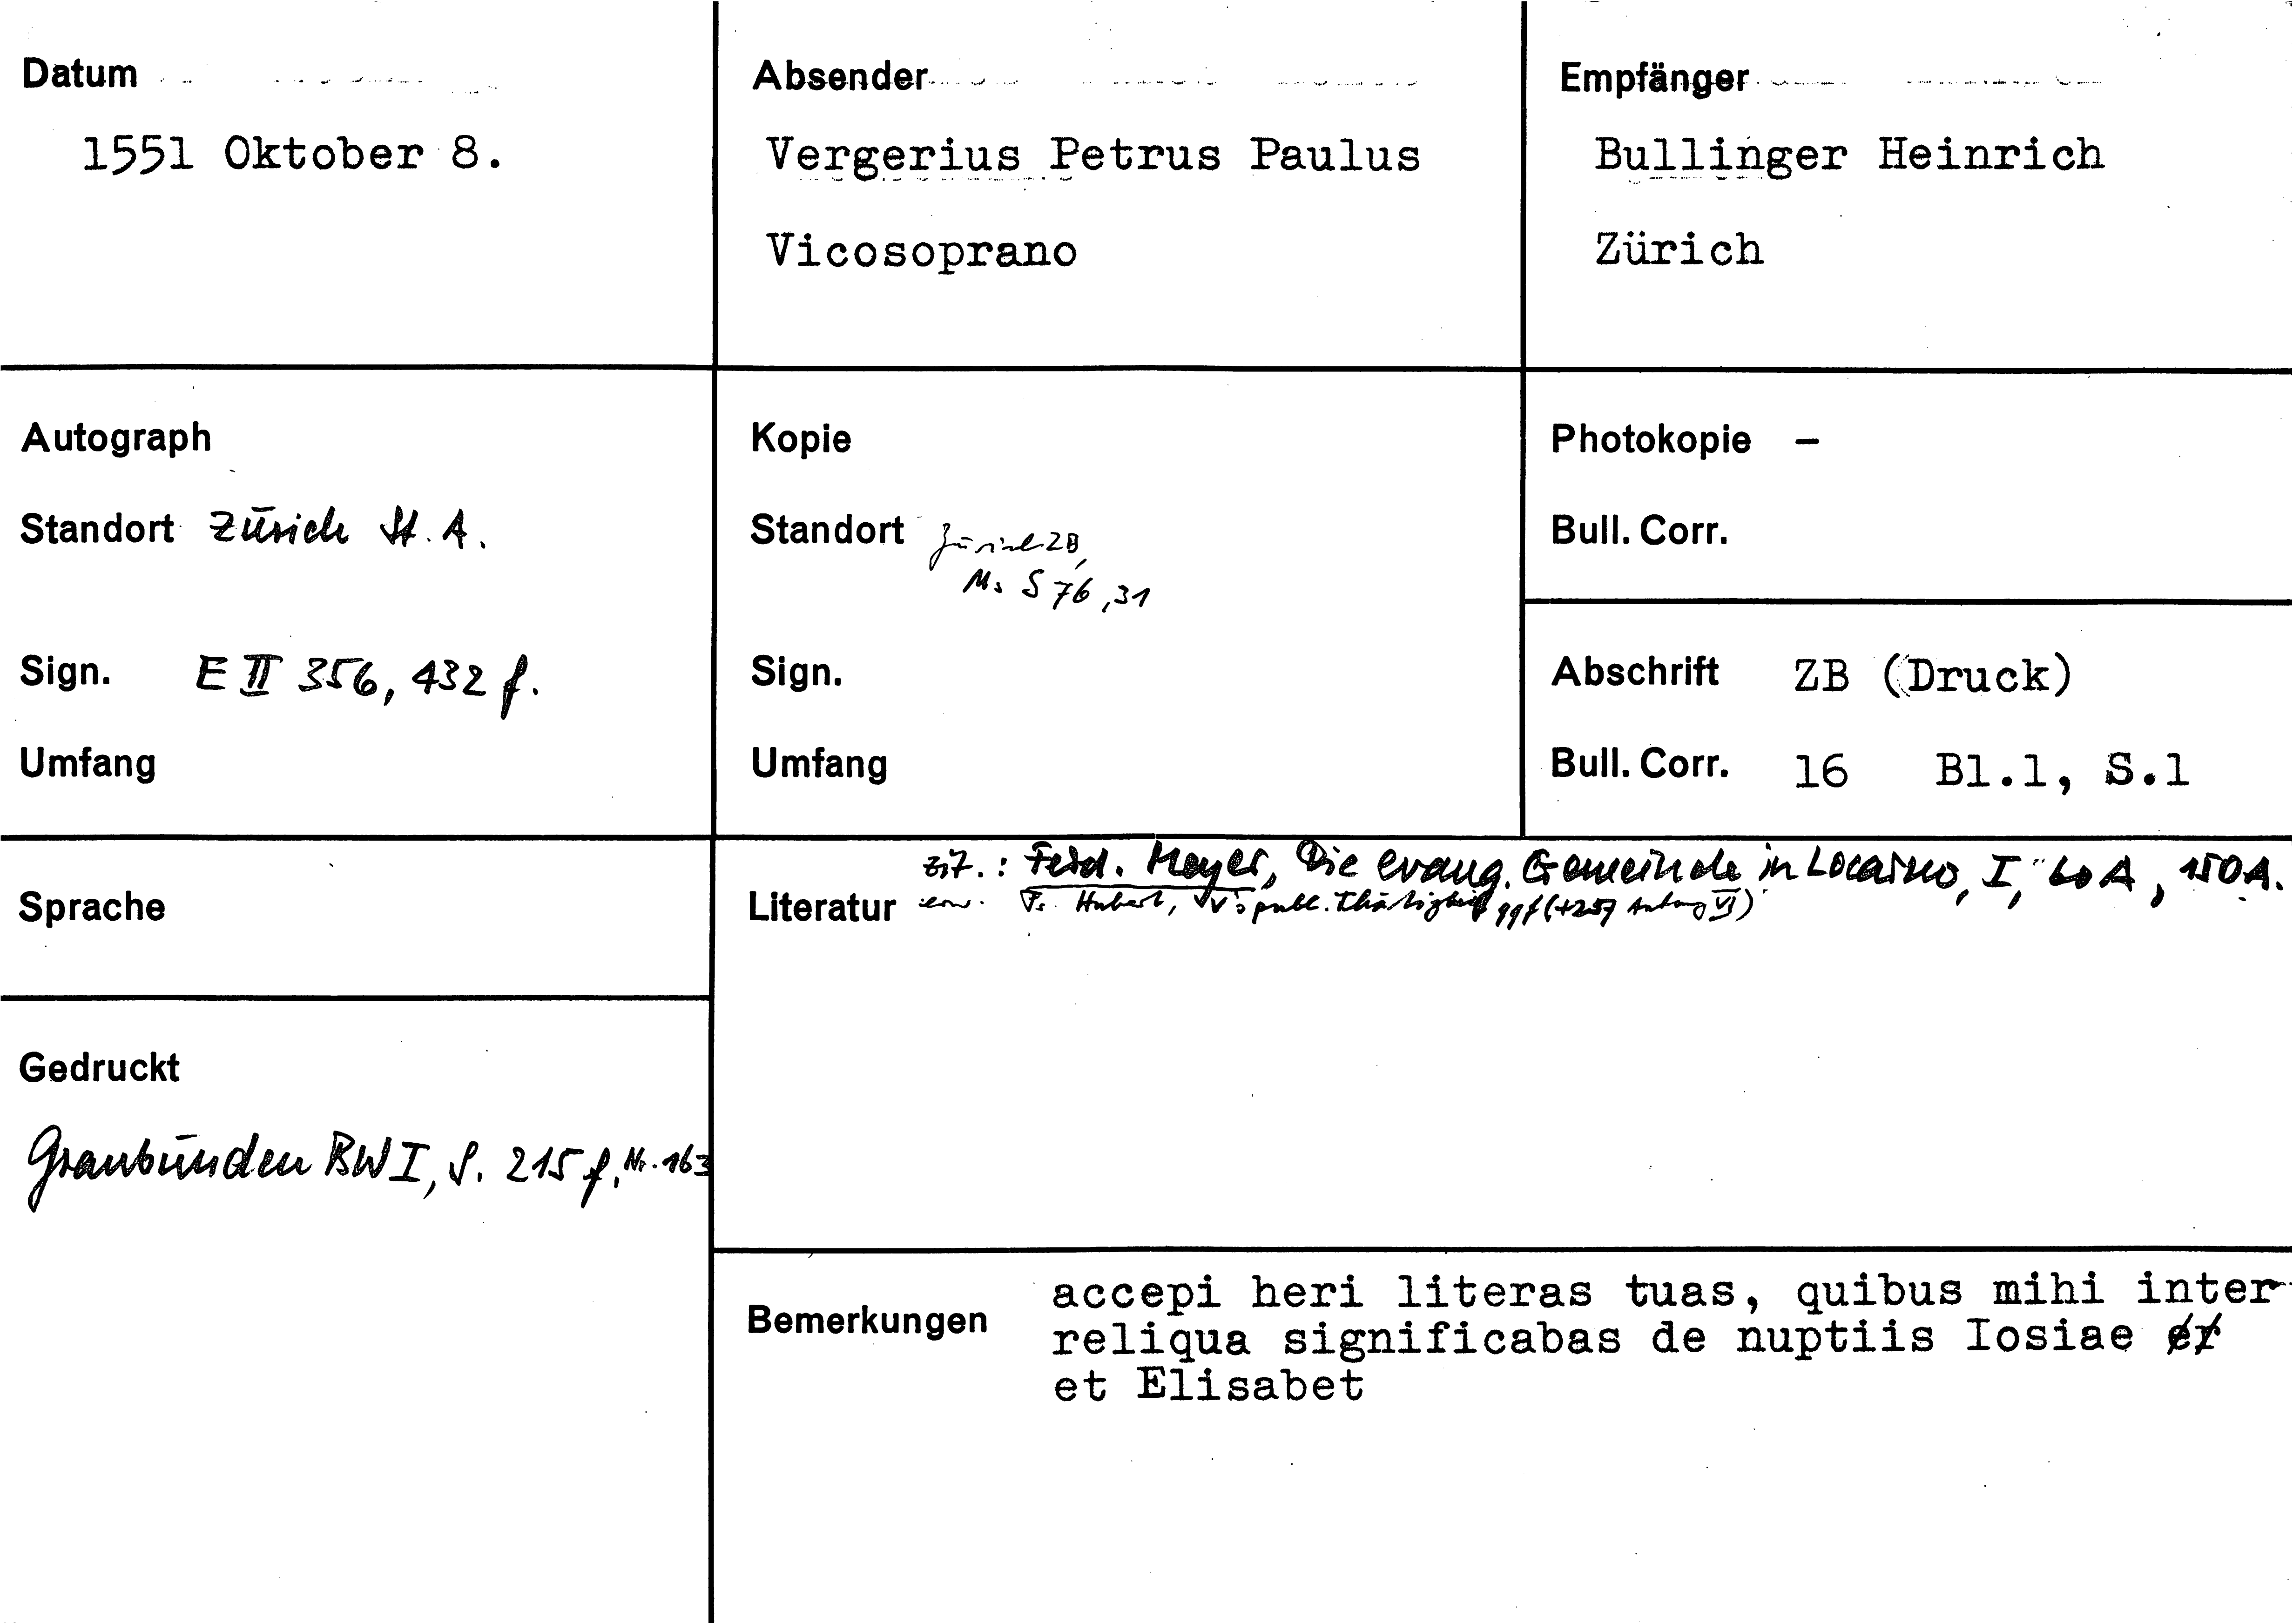 Datum
1551 Oktober 8.
Absender
Vergerius Petrus Paulus
Vicosoprano
Empfänger
Bullinger Heinrich
Zürich
Autograph
Standort Zürich St. A.
Sign. E II 356, 432 f.
Umfang
Kopie
Standort Zürich ZB,
Ms S 76, 31
Sign.
Umfang
Photokopie –
Bull. Corr.
Abschrift ZB (Druck)
Bull. Corr. 16 Bl.1, S.1
Sprache
Gedruckt
Graubünden BW I, S. 215 f, Nr. 163
zit.: Ferd. Meyer, Die evang. Gemeinde in Locarno, I, 60 A, 150 A.
Literatur erw. Fr. Hubert, V's publ. Thätigkeit 99f (+257 Anhang VI)
Bemerkungen
accepi heri literas tuas, quibus mihi inter
reliqua significabas de nuptiis Iosiae
et Elisabet